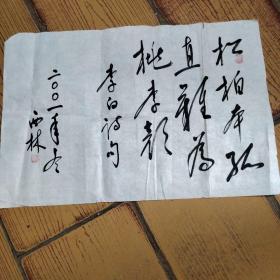 松柏本孤
直難為
桃李顏
李白詩句
二〇〇一年冬
西林